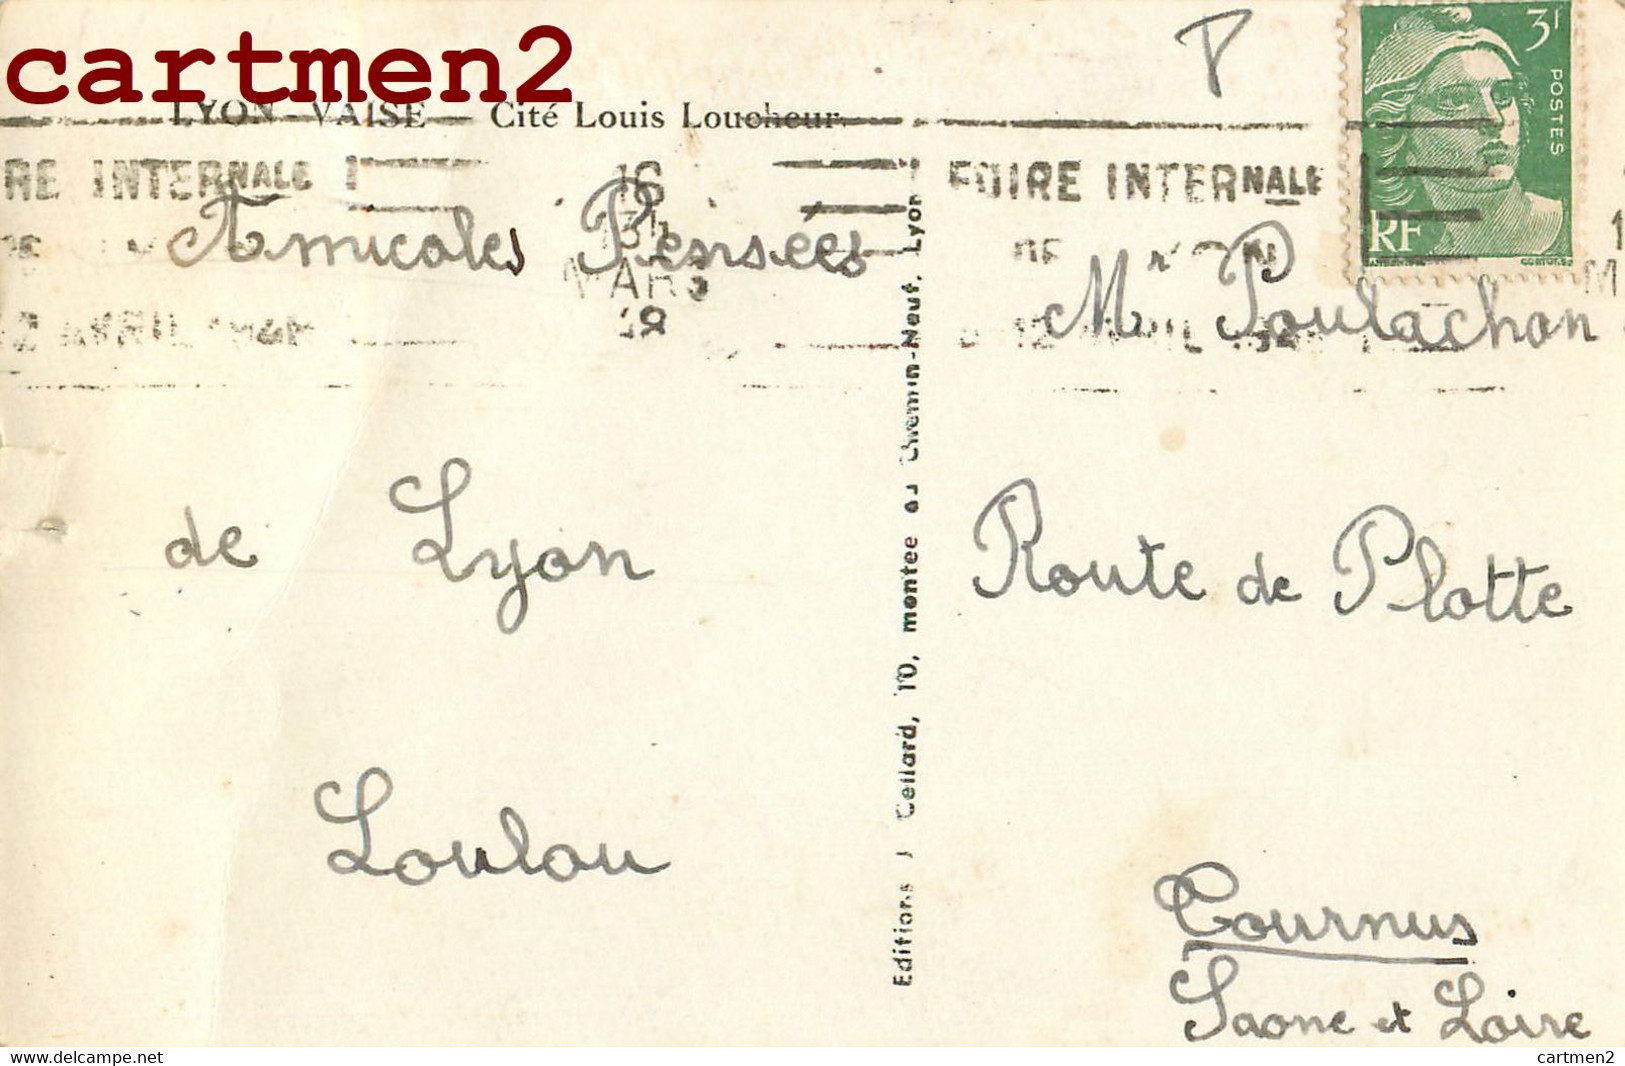 cartmen2
LYON-VAISE — Cité Louis Loucheur
RE INTERNALE
16
13H
MARS
FOIRE INTERNALE
3F
POSTES
RF
P
Amicales Pensées
de Lyon
Loulou
2 AVRIL
Editions J Cellard, 10, montee du Chemin-Neuf, Lyon
M. Poulachon
Route de Plotte
Tournus
Saone et Loire
cartmen2
cartmen2